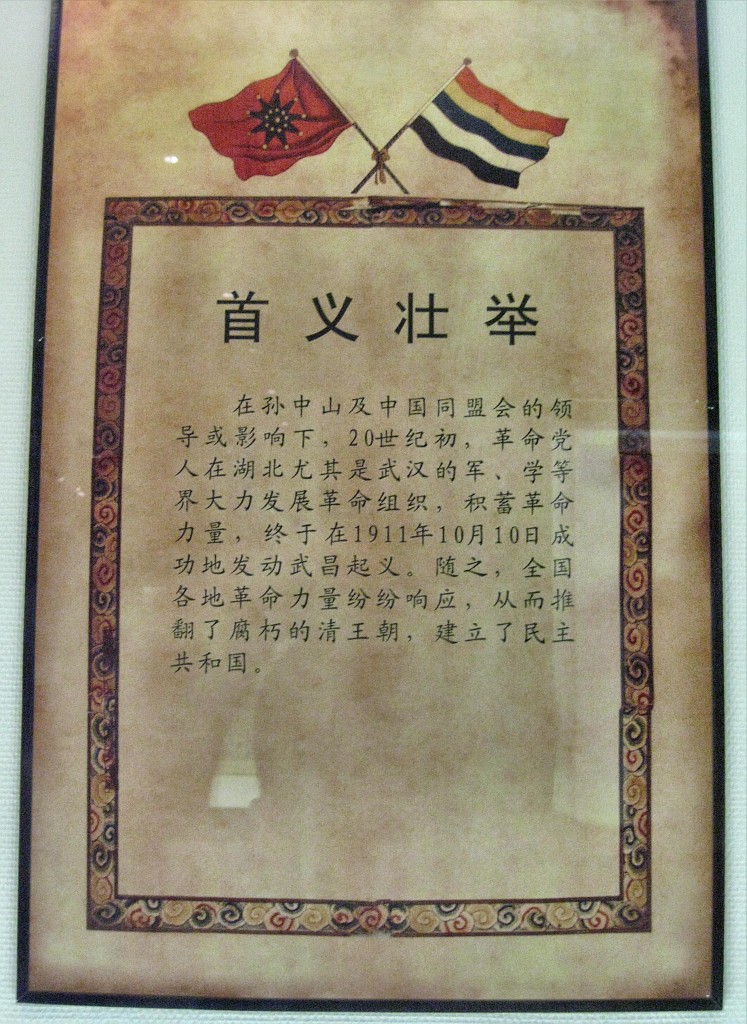 首义壮举
在孙中山及中国同盟会的领
导或影响下，20世纪初，革命党
人在湖北尤其是武汉的军、学等
界大力发展革命组织，积蓄革命
力量，终于在1911年10月10日成
功地发动武昌起义。随之，全国
各地革命力量纷纷响应，从而推
翻了腐朽的清王朝，建立了民主
共和国。